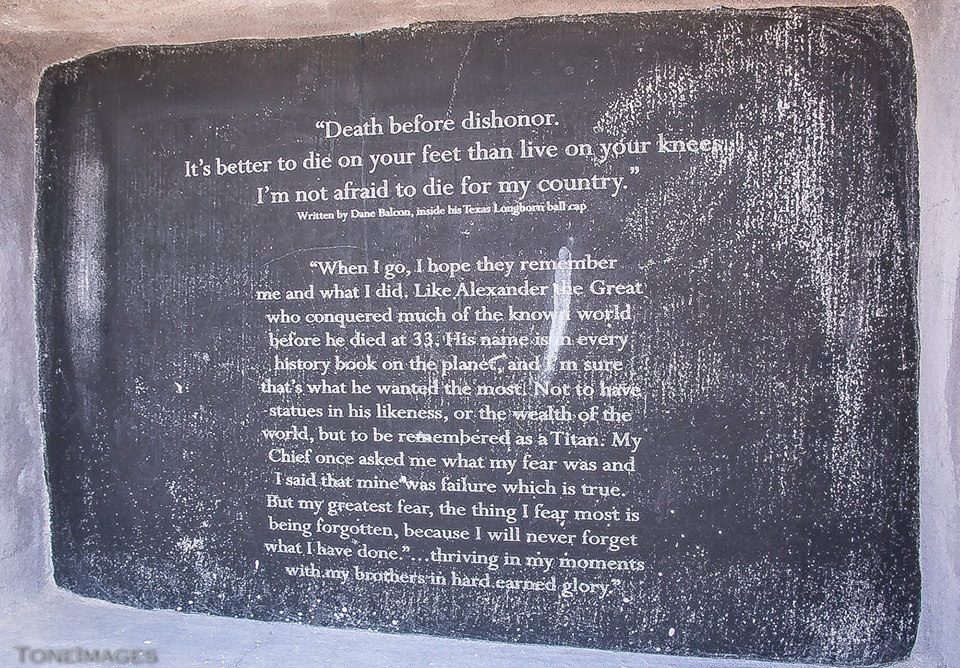 “Death before dishonor.
It’s better to die on your feet than live on your knees.
I’m not afraid to die for my country.”
Written by Dane Balcon, inside his Texas Longhorn ball cap
“When I go, I hope they remember
me and what I did. Like Alexander the Great
who conquered much of the known world
before he died at 33. His name is in every
history book on the planet, and I’m sure
that’s what he wanted the most. Not to have
statues in his likeness, or the wealth of the
world, but to be remembered as a Titan. My
Chief once asked me what my fear was and
I said that mine was failure which is true.
But my greatest fear, the thing I fear most is
being forgotten, because I will never forget
what I have done.”...thriving in my moments
with my brothers in hard earned glory.”
TONEIMAGES